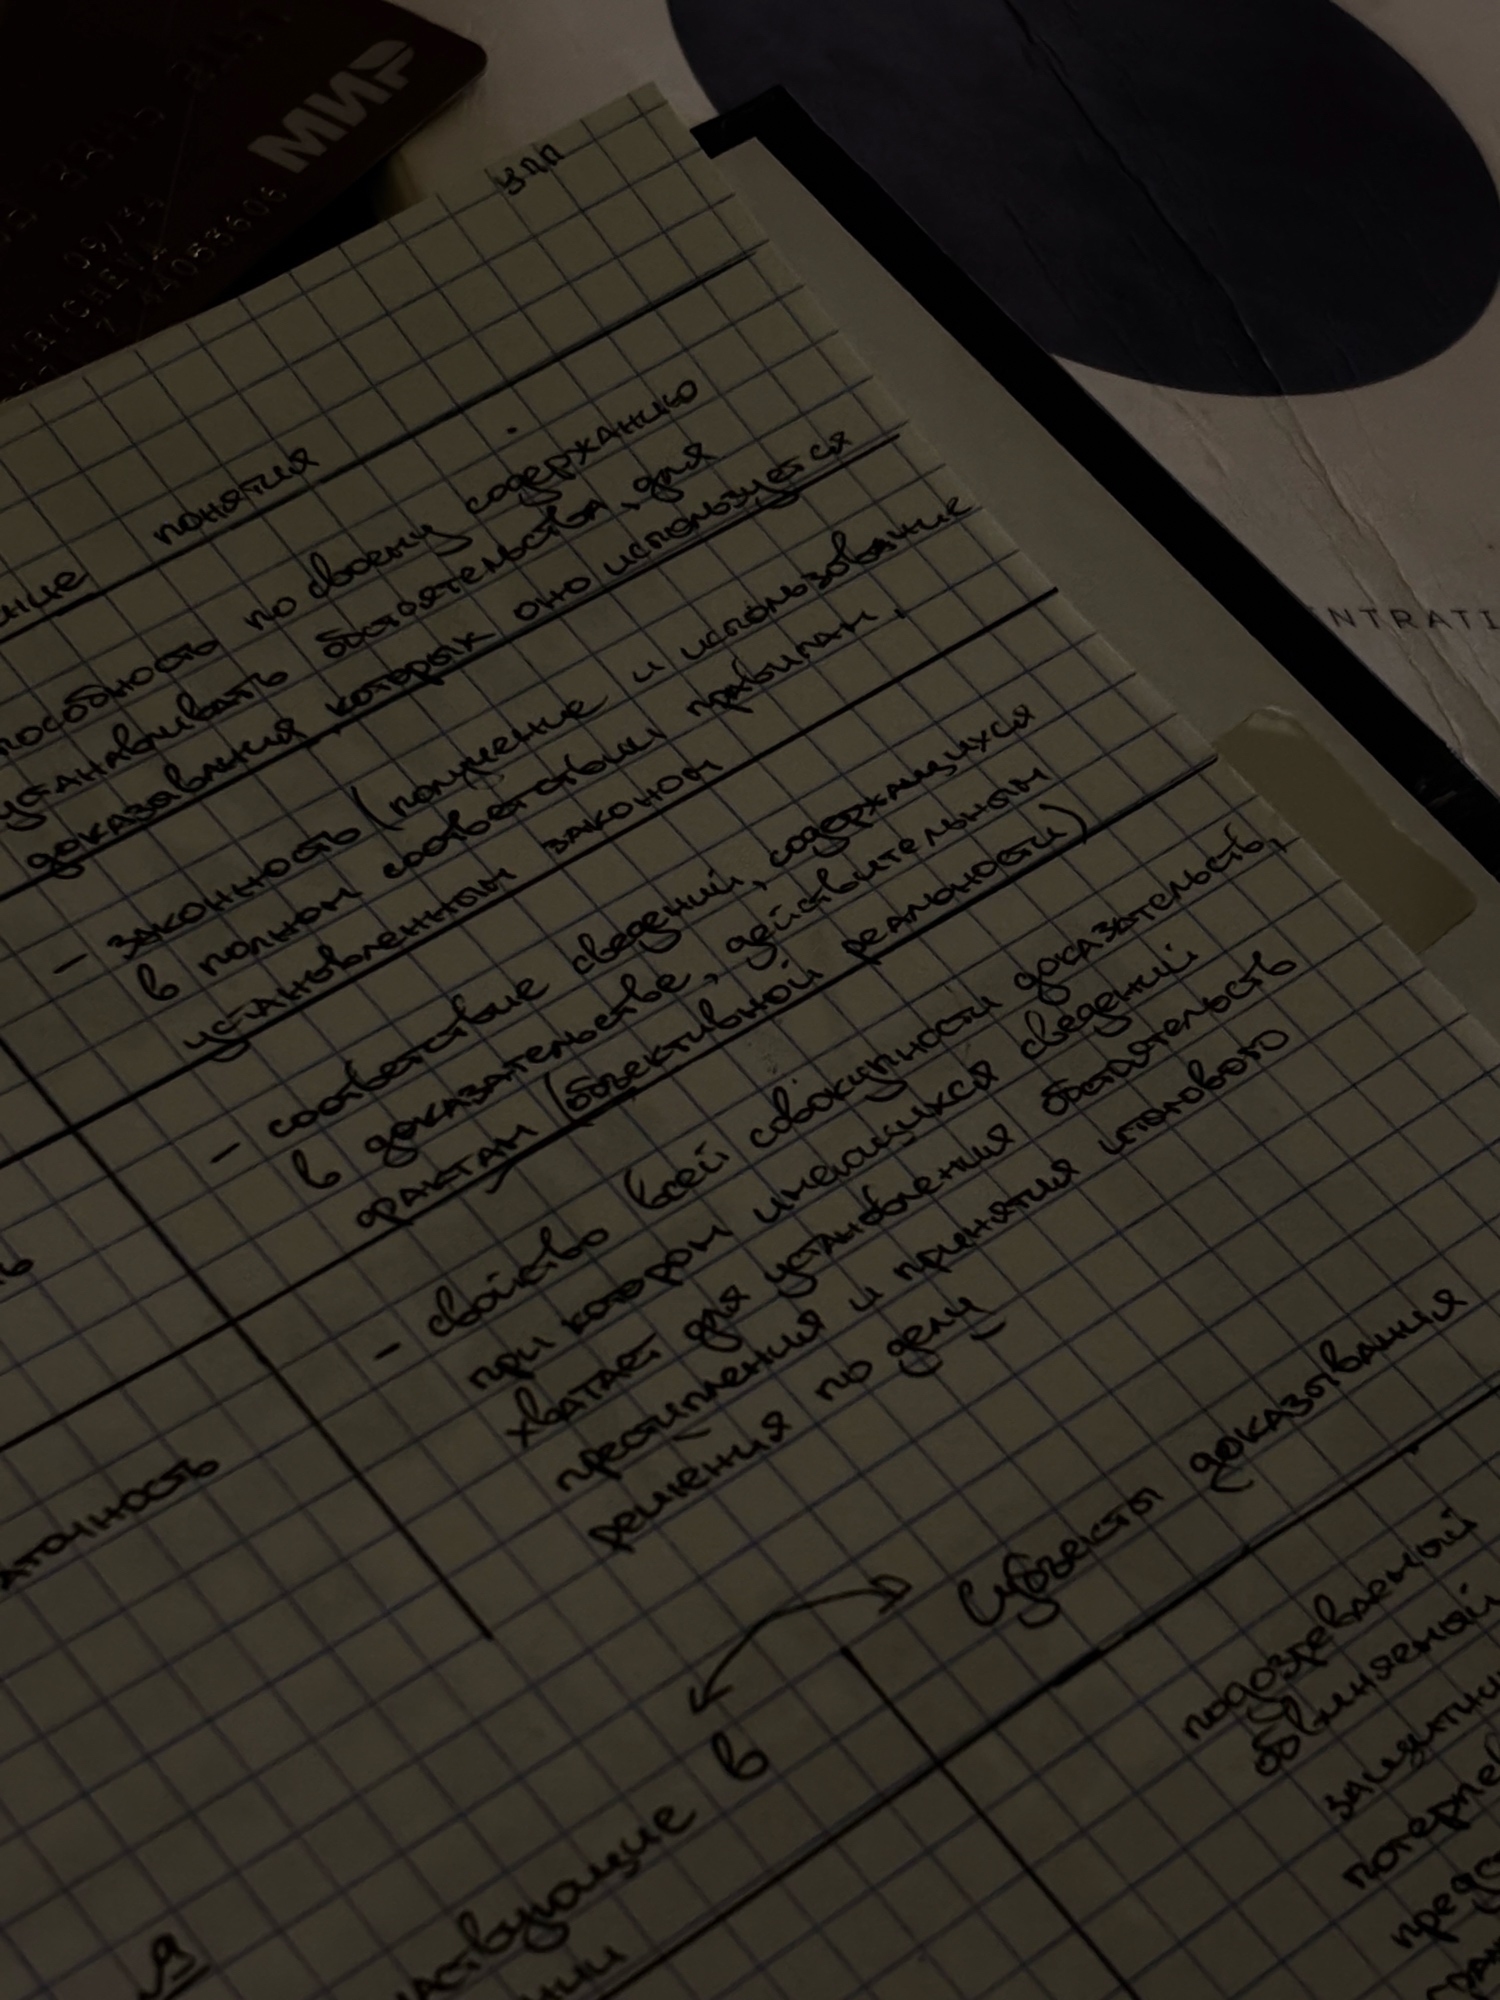 МИР
09/34
упп
понятия
способность по своему содержанию
устанавливать обстоятельства, для
доказывания которых оно используется
- законность (получение и использование
в полном соответствии правилам,
установленным законом
- соответствие сведений, содержащихся
в доказательстве, действительным
фактам (объективной реальности)
- свойство всей совокупности доказательств,
при котором имеющихся сведений
хватает для установления обстоятельств
преступления и принятия итогового
решения по делу
Субъекты доказывания
в
подозреваемый
обвиняемый
NTRATI